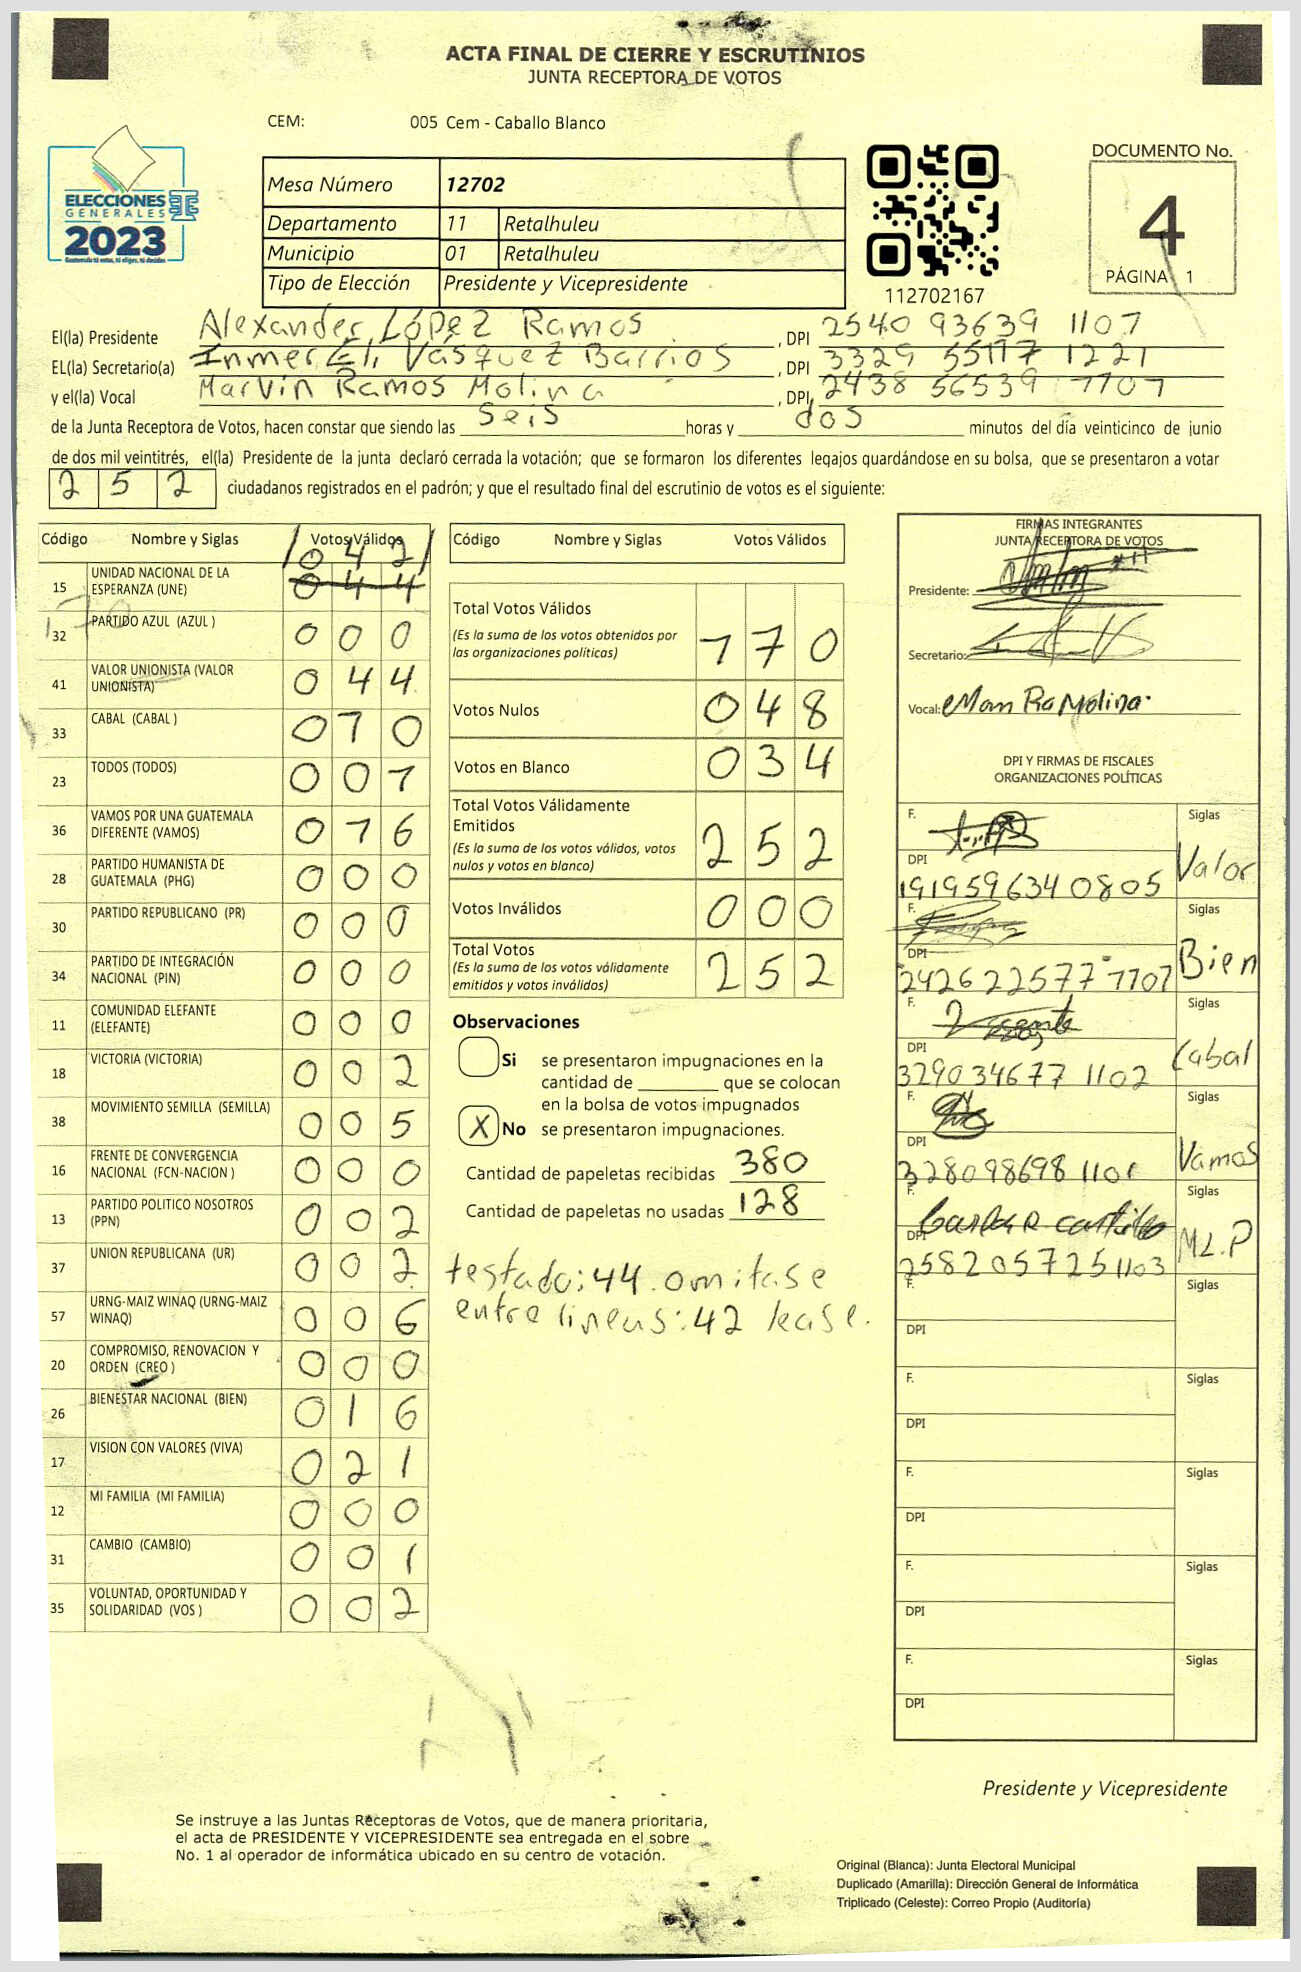 ACTA FINAL DE CIERRE Y ESCRUTINIOS
JUNTA RECEPTORA DE VOTOS
CEM: 005 Cem - Caballo Blanco
ELECCIONES
GENERALES
2023
Mesa Número 12702
Departamento 11 Retalhuleu
Municipio 01 Retalhuleu
Tipo de Elección Presidente y Vicepresidente
112702167
DOCUMENTO No.
4
PÁGINA 1
El(la) Presidente Alexander López Ramos, DPI 2540 93639 1107
EL(la) Secretario(a) Inmer Eli Vásquez Barrios, DPI 3329 55117 1221
y el(la) Vocal Marvin Ramos Molina, DPI, 2438 56539 1107
de la Junta Receptora de Votos, hacen constar que siendo las seis horas y dos minutos del día veinticinco de junio
de dos mil veintitrés, el(la) Presidente de la junta declaró cerrada la votación; que se formaron los diferentes legajos quardándose en su bolsa, que se presentaron a votar
252 ciudadanos registrados en el padrón; y que el resultado final del escrutinio de votos es el siguiente:
Código Nombre y Siglas Votos Válidos
042
15 UNIDAD NACIONAL DE LA ESPERANZA (UNE) 044
32 PARTIDO AZUL (AZUL ) 000
41 VALOR UNIONISTA (VALOR UNIONISTA) 044
33 CABAL (CABAL ) 010
23 TODOS (TODOS) 001
36 VAMOS POR UNA GUATEMALA DIFERENTE (VAMOS) 016
28 PARTIDO HUMANISTA DE GUATEMALA (PHG) 000
30 PARTIDO REPUBLICANO (PR) 000
34 PARTIDO DE INTEGRACIÓN NACIONAL (PIN) 000
11 COMUNIDAD ELEFANTE (ELEFANTE) 000
18 VICTORIA (VICTORIA) 002
38 MOVIMIENTO SEMILLA (SEMILLA) 005
16 FRENTE DE CONVERGENCIA NACIONAL (FCN-NACION ) 000
13 PARTIDO POLITICO NOSOTROS (PPN) 002
37 UNION REPUBLICANA (UR) 002
57 URNG-MAIZ WINAQ (URNG-MAIZ WINAQ) 006
20 COMPROMISO, RENOVACION Y ORDEN (CREO ) 000
26 BIENESTAR NACIONAL (BIEN) 016
17 VISION CON VALORES (VIVA) 021
12 MI FAMILIA (MI FAMILIA) 000
31 CAMBIO (CAMBIO) 001
35 VOLUNTAD, OPORTUNIDAD Y SOLIDARIDAD (VOS ) 002
Código Nombre y Siglas Votos Válidos
Total Votos Válidos
(Es la suma de los votos obtenidos por
las organizaciones políticas) 170
Votos Nulos 048
Votos en Blanco 034
Total Votos Válidamente
Emitidos
(Es la suma de los votos válidos, votos
nulos y votos en blanco) 252
Votos Inválidos 000
Total Votos
(Es la suma de los votos válidamente
emitidos y votos inválidos) 252
Observaciones
Si se presentaron impugnaciones en la
cantidad de ________ que se colocan
en la bolsa de votos impugnados
X No se presentaron impugnaciones.
Cantidad de papeletas recibidas 380
Cantidad de papeletas no usadas 128
testado: 44. omitase
entre lineas: 42 lease.
FIRMAS INTEGRANTES
JUNTA RECEPTORA DE VOTOS
Presidente:
Secretario:
Vocal: Molina
DPI Y FIRMAS DE FISCALES
ORGANIZACIONES POLÍTICAS
F. Siglas
DPI 1919596340805 Valor
F. Siglas
DPI 2426225771107 Bien
F. Siglas
DPI 3290346771102 Cabal
F. Siglas
DPI 3280986981101 Vamos
F. Siglas
DPI 2582057251103 M.L.P
F. Siglas
DPI
F. Siglas
DPI
F. Siglas
DPI
F. Siglas
DPI
F. Siglas
DPI
Presidente y Vicepresidente
Se instruye a las Juntas Receptoras de Votos, que de manera prioritaria,
el acta de PRESIDENTE Y VICEPRESIDENTE sea entregada en el sobre
No. 1 al operador de informática ubicado en su centro de votación.
Original (Blanca): Junta Electoral Municipal
Duplicado (Amarilla): Dirección General de Informática
Triplicado (Celeste): Correo Propio (Auditoría)